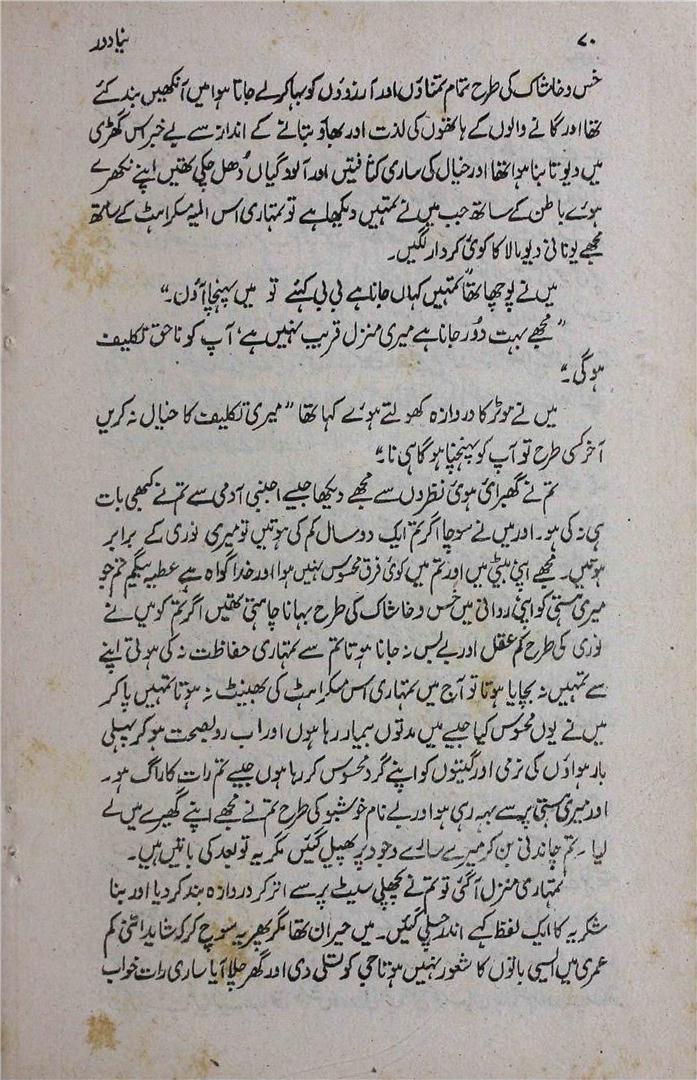 ۷۰ نیا دور
خس و خاشاک کی طرح تمام تمناؤں اور آرزوؤں کو بہا کر لے جاتا ہوا میں آنکھیں بند کئے
تھا اور گانے والوں کے ہاتھوں کی لذت اور بھاؤ بتانے کے انداز سے بے خبر اس گھڑی
میں دیوتا بنا ہوا تھا اور خیال کی ساری کثافتیں اور آلودگیاں دُھل چکی تھیں اپنے نکھرے
ہوئے باطن کے ساتھ جب میں نے تمہیں دیکھا ہے تو تمہاری اس المیہ مسکراہٹ کے ساتھ
مجھے یونانی دیومالا کا کوئی کردار لگیں۔
میں نے پوچھا تھا "تمہیں کہاں جانا ہے بی بی کہئے تو میں پہنچا آؤں۔"
"مجھے بہت دُور جانا ہے میری منزل قریب نہیں ہے، آپ کو ناحق تکلیف
ہوگی۔"
میں نے موٹر کا دروازہ کھولتے ہوئے کہا تھا "میری تکلیف کا خیال نہ کریں
آخر کسی طرح تو آپ کو پہنچنا ہوگا ہی نا۔"
تم نے گھبرائی ہوئی نظروں سے مجھے دیکھا جیسے اجنبی آدمی سے تم نے کبھی بات
ہی نہ کی ہو۔ اور میں نے سوچا اگر تم ایک دو سال کم کی ہوتیں تو میری نوری کے برابر
ہوتیں۔ مجھے اپنی بیٹی میں اور تم میں کوئی فرق محسوس نہیں ہوا اور خدا گواہ ہے عطیہ بیگم تم جو
میری ہستی کو اپنی روانی میں خس و خاشاک کی طرح بہانا چاہتی تھیں اگر تم کو میں نے
نوری کی طرح کم عقل اور بے بس نہ جانا ہوتا تم سے تمہاری حفاظت نہ کی ہوتی اپنے
سے تمہیں نہ بچایا ہوتا تو آج میں تمہاری اس مسکراہٹ کی بھینٹ نہ ہوتا تمہیں پا کر
میں نے یوں محسوس کیا جیسے میں مدتوں بیمار رہا ہوں اور اب روبصحت ہو کر پہلی
بار ہواؤں کی نرمی اور گیتوں کو اپنے گرد محسوس کر رہا ہوں جیسے تم رات کا راگ ہو۔
اور میری ہستی پر سے بہہ رہی ہو اور بے نام خوشبو کی طرح تم نے مجھے اپنے گھیرے میں لے
لیا۔ تم چاندنی بن کر میرے سارے وجود پر پھیل گئیں مگر یہ تو بعد کی باتیں ہیں۔
تمہاری منزل آگئی تو تم نے پچھلی سیٹ پر سے اتر کر دروازہ بند کر دیا اور بنا
شکریہ کا ایک لفظ کہے اندر چلی گئیں۔ میں حیران تھا مگر پھر یہ سوچ کر کہ شاید اتنی کم
عمری میں ایسی باتوں کا شعور نہیں ہوتا جی کو تسلی دی اور گھر چلا آیا ساری رات خواب